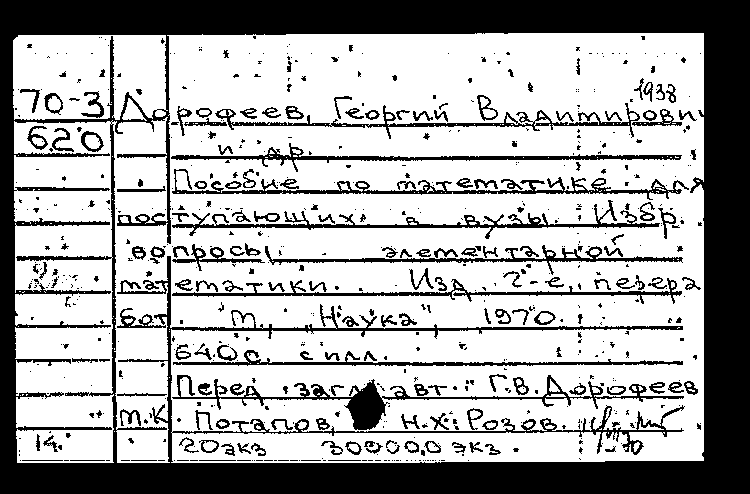 1938
70-3 Дорофеев, Георгий Владимирович
620
и др.
Пособие по математике для
поступающих в вузы. Избр.
вопросы элементарной
математики. Изд. 2-е, перера
бот. М., "Наука", 1970.
640 с. с илл.
Перед загл. авт.: Г.В. Дорофеев
М.К. Потапов, Н.Х. Розов.
14. 20 экз 300000 экз.